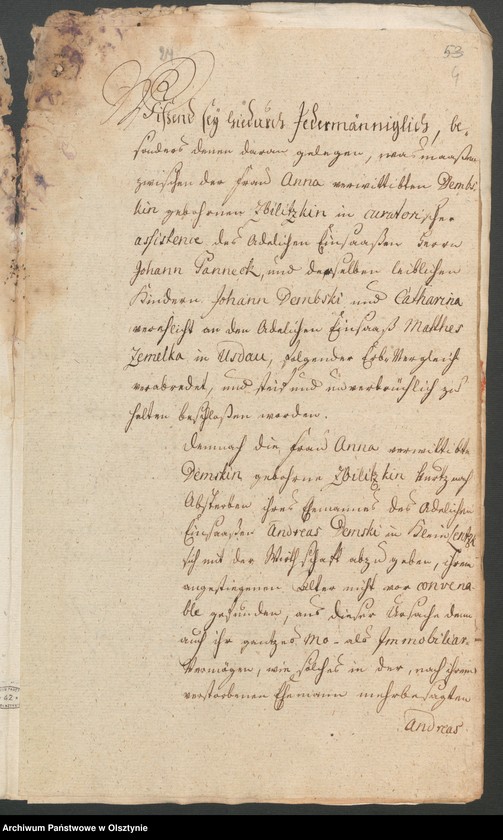 24
53
4
Wißend sey hiedurch Jedermänniglich, be-
sonders denen daran gelegen, was maaßen
zwischen der Frau Anna verwittibten Dembs
kin gebohrnen Zbilitzkin in curatorischer
assistence des Adelichen Einsaaßen Herrn
Johann Panneck, und derselben leiblichen
Kindern Johann Dembski und Catharina
verehlicht an den Adelichen Einsaaß Matthes
Zemelka in Usdau, folgender Erb-Vergleich
verabredet, und steif und unverbrüchlich zu
halten beschloßen worden.
Demnach die Frau Anna verwittibte
Demskin gebohrne Zbilitzkin kurtz nach
Absterben ihres Ehemannes des Adelichen
Einsaaßen Andreas Demski in Klein
sich mit der Wirthschaft abzugeben, ihrem
angestiegenen Alter nicht vor convena-
ble gefunden, aus dieser Ursache denn
auch ihr gantzes Mo- als Immobiliar-
Vermögen, wie solches in der, nach ihrem
verstorbenen Ehemann mehrbesagten
Andreas
62
Archiwum Państwowe w Olsztynie